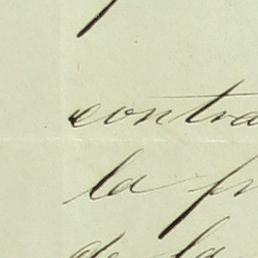 contra
la fr
de la